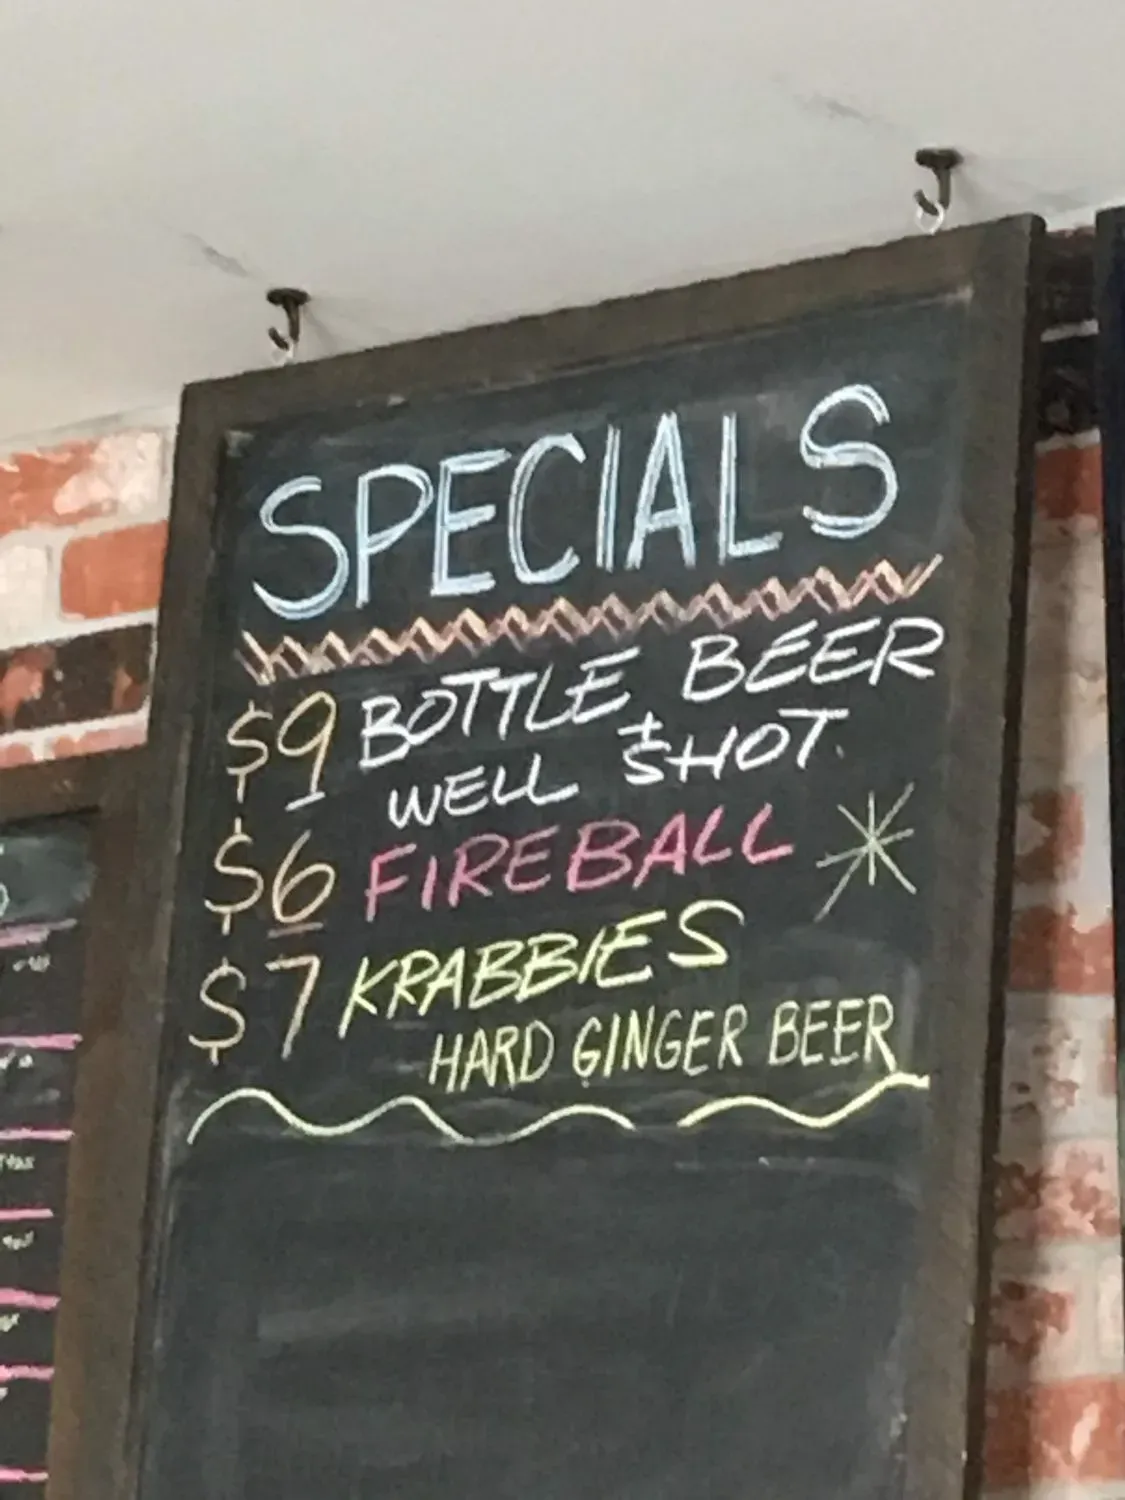 SPECIALS
$9 BOTTLE BEER
+
WELL SHOT.
$6 FIREBALL
$7 KRABBIES
HARD GINGER BEER